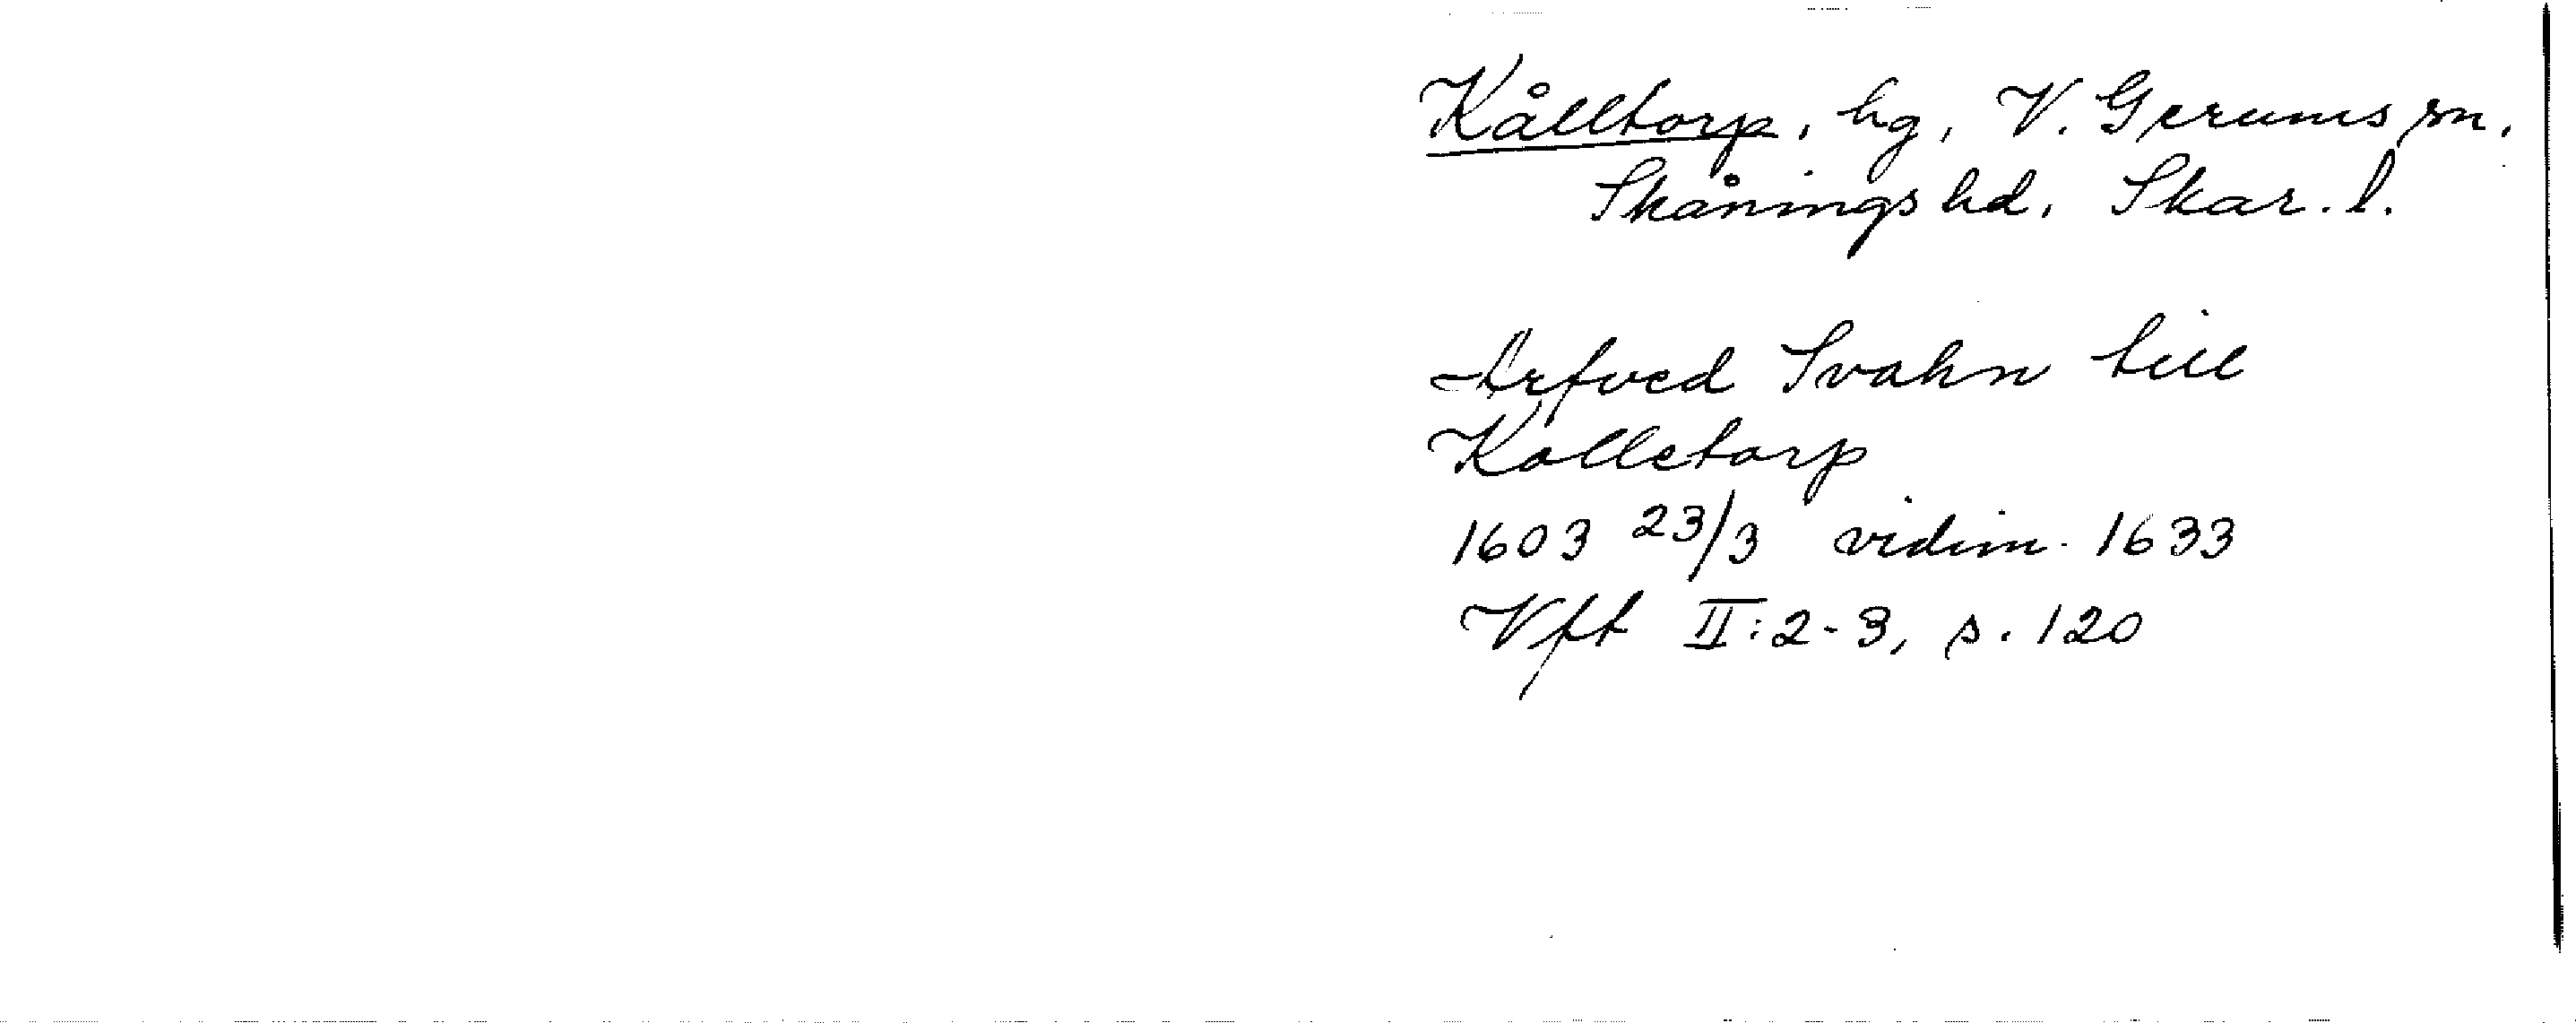 Kålltorp, hg, V. Gerums sn.
Skånings hd, Skar. l.
Arfved Svahn till
Kolletorp
1603 23/3 vidim. 1633
Vft II:2-3, s. 120